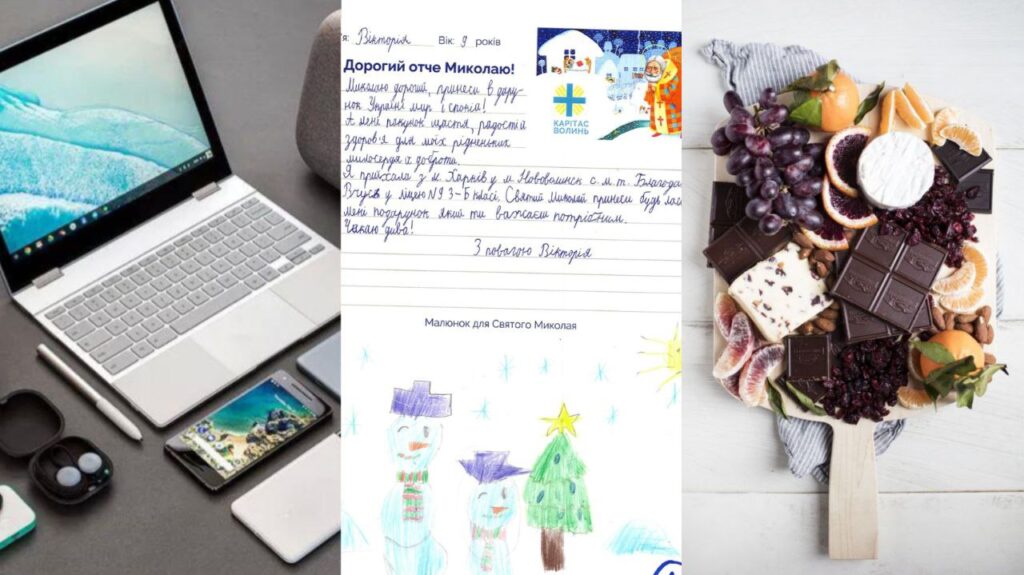 я: Вікторія Вік: 9 років
Дорогий отче Миколаю!
КАРІТАС
ВОЛИНЬ
Миколаю дорогий, принеси в дару-
нок Україні мир і спокій!
А мені пакунок щастя, радості й
здоров'я для моїх рідненьких
милосердя а доброти.
Я приїхала з м. Харків у м. Нововолинск с.м.т. Благода
Вчуся у ліцею 3-Б класі, Святий Миколай принеси будь лас
мені подарунок який ти вважаєш потрібним.
Чекаю дива!
З повагою Вікторія
Малюнок для Святого Миколая